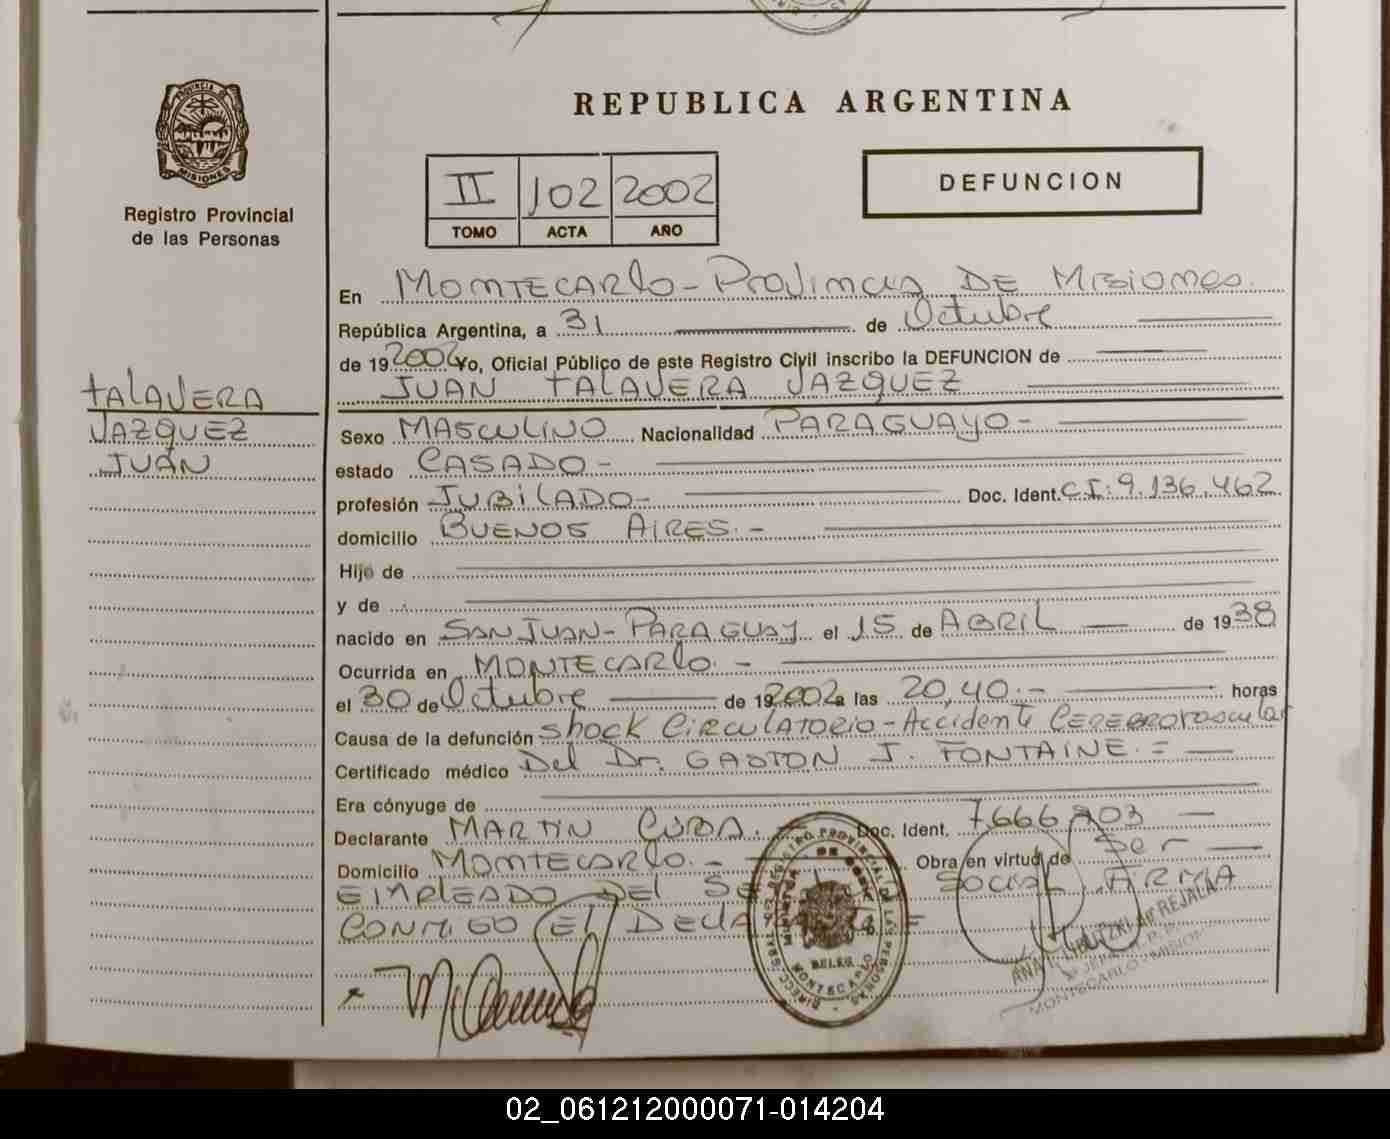 REPUBLICA ARGENTINA
PROVINCIA DE
MISIONES
Registro Provincial
de las Personas
II 102 2002
TOMO ACTA AÑO
DEFUNCION
En MONTECARLO - PROVINCIA DE MISIONES.
República Argentina, a 31 de Octubre
de 19 2002 Yo, Oficial Público de este Registro Civil inscribo la DEFUNCION de
JUAN TALAVERA VAZQUEZ
TALAVERA
VAZQUEZ
JUAN
Sexo MASCULINO Nacionalidad PARAGUAYO-
estado CASADO-
profesión JUBILADO- Doc. Ident. C.I: 9.136.462
domicilio BUENOS AIRES.-
Hijo de
y de
nacido en SAN JUAN - PARAGUAY el 15 de ABRIL de 1938
Ocurrida en MONTECARLO.-
el 30 de Octubre de 19 2002 a las 20,40.- horas
Causa de la defunción Shock CIRCULATORIO - Accidente CEREBROVASCULAR
Certificado médico Del Dr. GASTON J. FONTAINE.=
Era cónyuge de
Declarante MARTIN Doc. Ident. 7666203
Domicilio MONTECARLO.- Obra en virtud de Ser
EMPLEADO DEL SOCIAL
CONMIGO EL
MONTECARLO
MONTECARLO - MISIONES
02_061212000071-014204